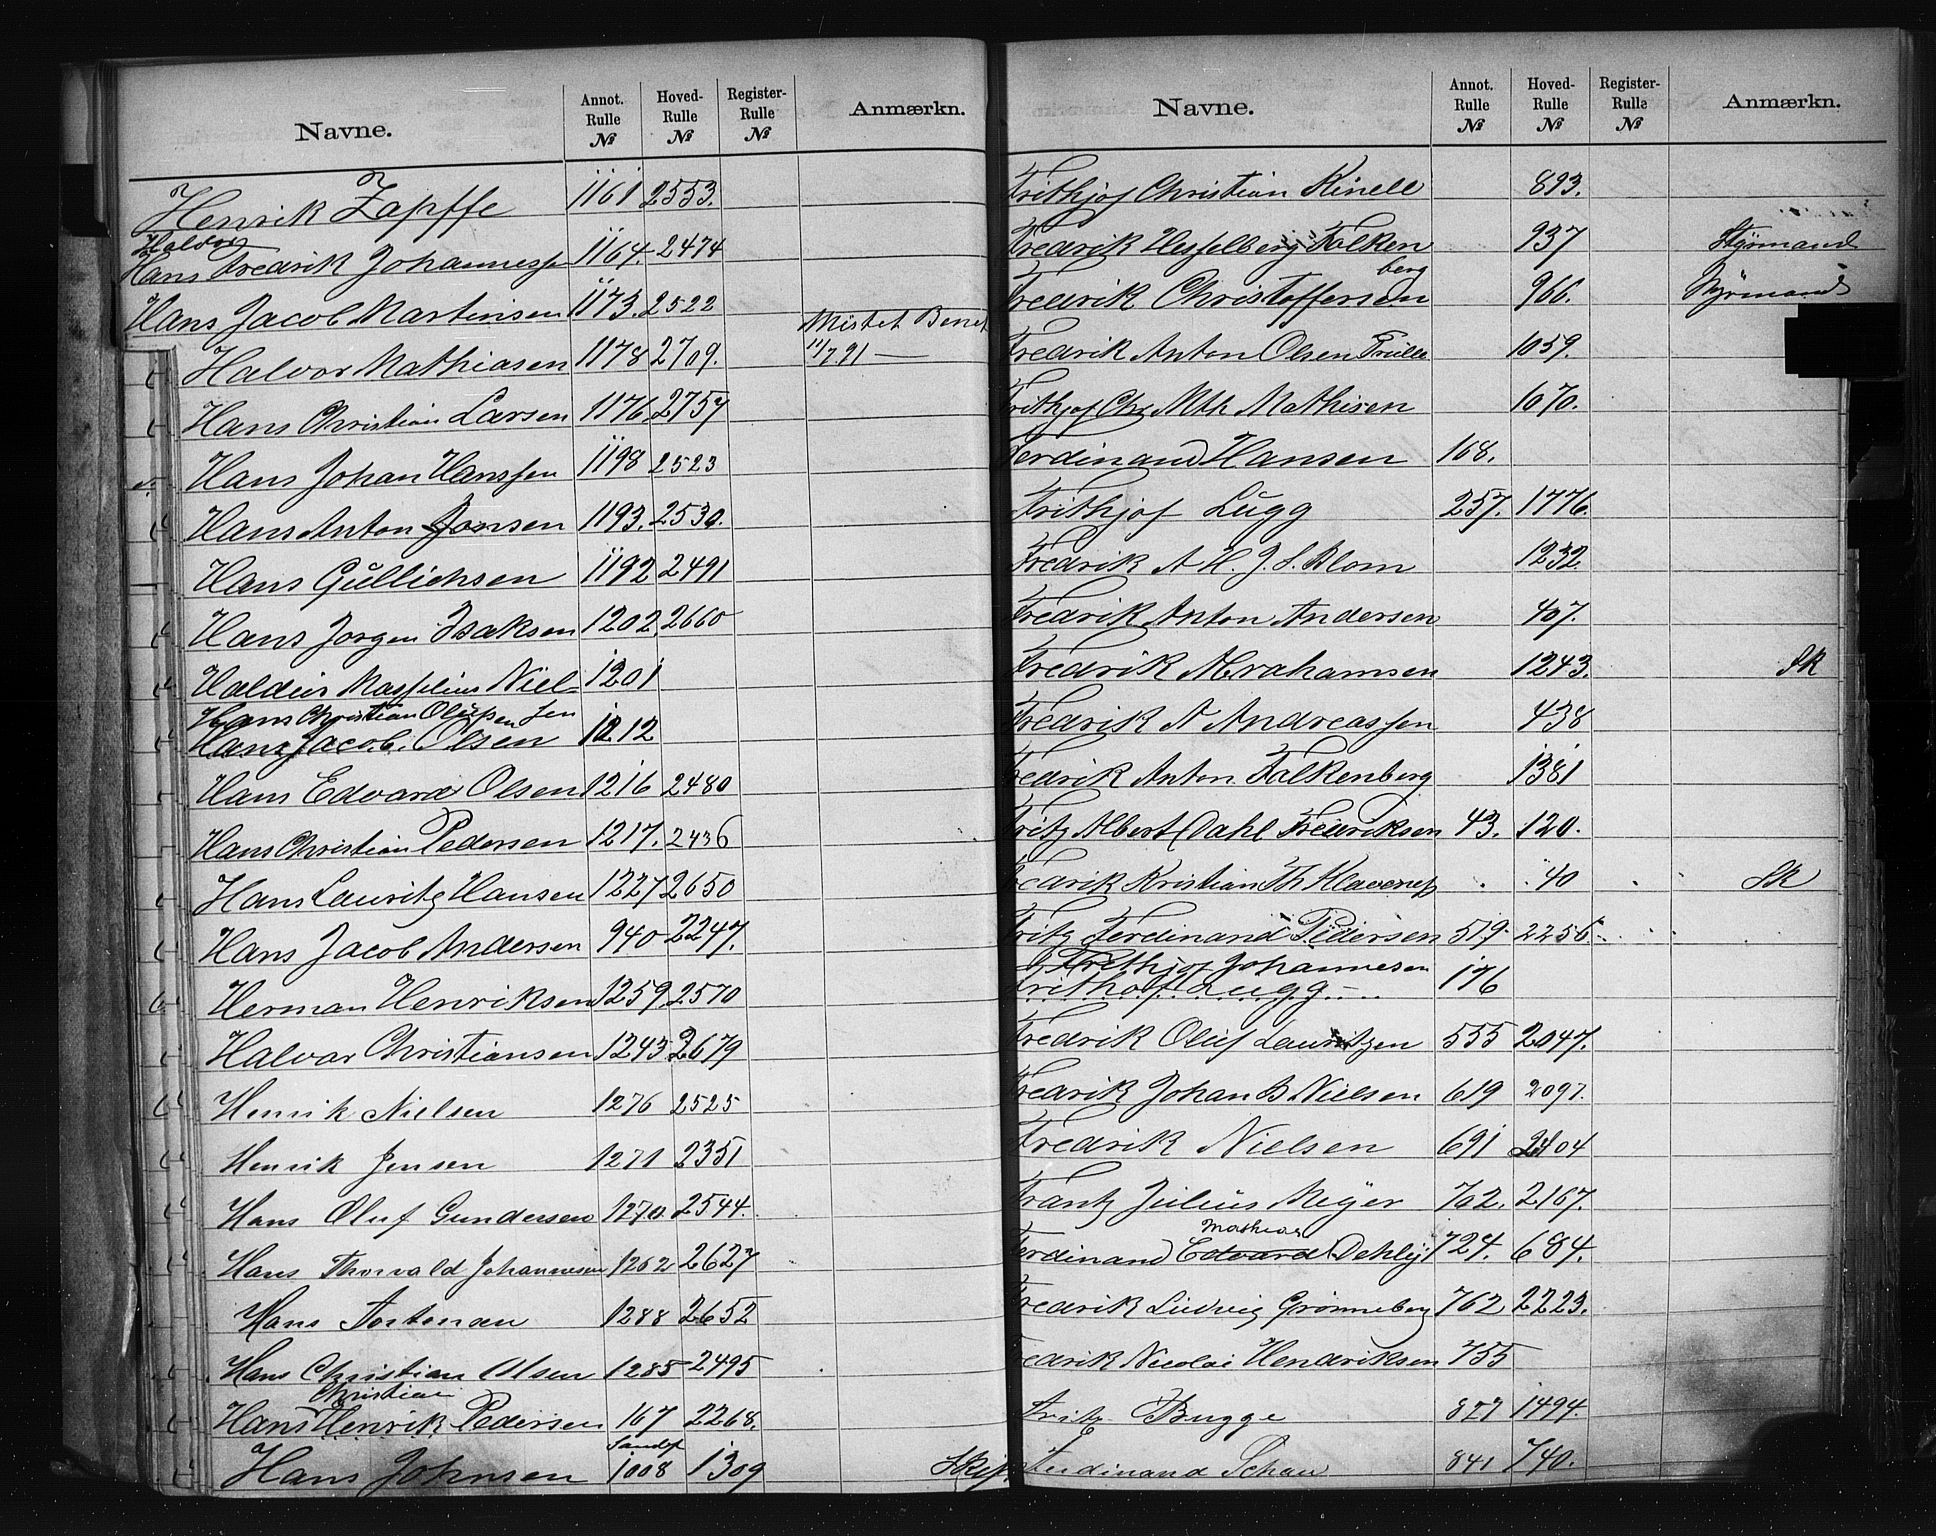 Navne. Annot. Rulle № Hoved- Rulle № Register- Rulle № Anmærkn.
Henrik Zapffe 1161 2553.
Halvor
Hans Fredrik Johannessen 1164. 2474
Hans Jacob Martinsen 1173. 2522
Mistet Benet
Halvor Mathiasen 1178 2709. 11/7 91 —
Hans Christian Larsen 1176 2757
Hans Johan Hanssen 1198 2523
Hans Anton Jonsen 1193. 2530.
Hans Gullichsen 1192 2491
Hans Jorgen Isaksen 1202 2660
Haldin Masselius Niel- 1201
Hans Christian Olufsen sen
Hans Jacob. Olsen 1212
Hans Edvard Olsen 1216 2480
Hans Christian Pedersen 1217. 2436
Hans Lauritz Hansen 1227 2650
Hans Jacob Andersen 940 2247.
Herman Henriksen 1259 2570
Halvor Christiansen 1243 2679
Henrik Nielsen 1276 2525
Henrik Jensen 1271 2351
Hans Oluf Gundersen 1270 2544.
Hans Thorvald Johannesen 1262 2627
Hans Tostensen 1288 2652
Hans Christian Olsen 1285 2495
Christian
Hans Henrik Pedersen 167 2268.
Sandf
Hans Johnsen 1008 1309 Skip
Navne. Annot. Rulle № Hoved- Rulle № Register- Rulle № Anmærkn.
Frithjof Christian Kinell 893.
Fredrik Hesselberg Falken 937 Styrmand
berg
Fredrik Christoffersen 966. Styrmand
Fredrik Anton Olsen 1059.
Frithjof Chr Mth Mathisen 1070.
Ferdinand Hansen 168.
Frithjof Lugg 257. 1776.
Fredrik A H. J. S. Blom 1232
Fredrik Anton Andersen 407.
Fredrik Abrahamsen 1243. Sk
Fredrik A Andreassen 438
Fredrik Anton Falkenberg 1381
Fritz Albert Dahl Fredriksen 43. 120.
Fredrik Kristian Th Klavenes 40 Sk
Fritz Ferdinand Pedersen 519. 2256
Frethjof Johannesen
Frithof Lugg 176
Fredrik Oluf Lauritzen 555 2047.
Fredrik Johan B Nielsen 619 2097.
Fredrik Nielsen 691 2404
Frantz Julius Meyer 762. 2167.
Mathias
Ferdinand Edvard Dehli 724. 684.
Fredrik Ludvig Grønneberg 762 2223.
Fredrik Nicolai Hendriksen 755
Fritz Bugge 877 1494.
Ferdinand Schau 841 740.